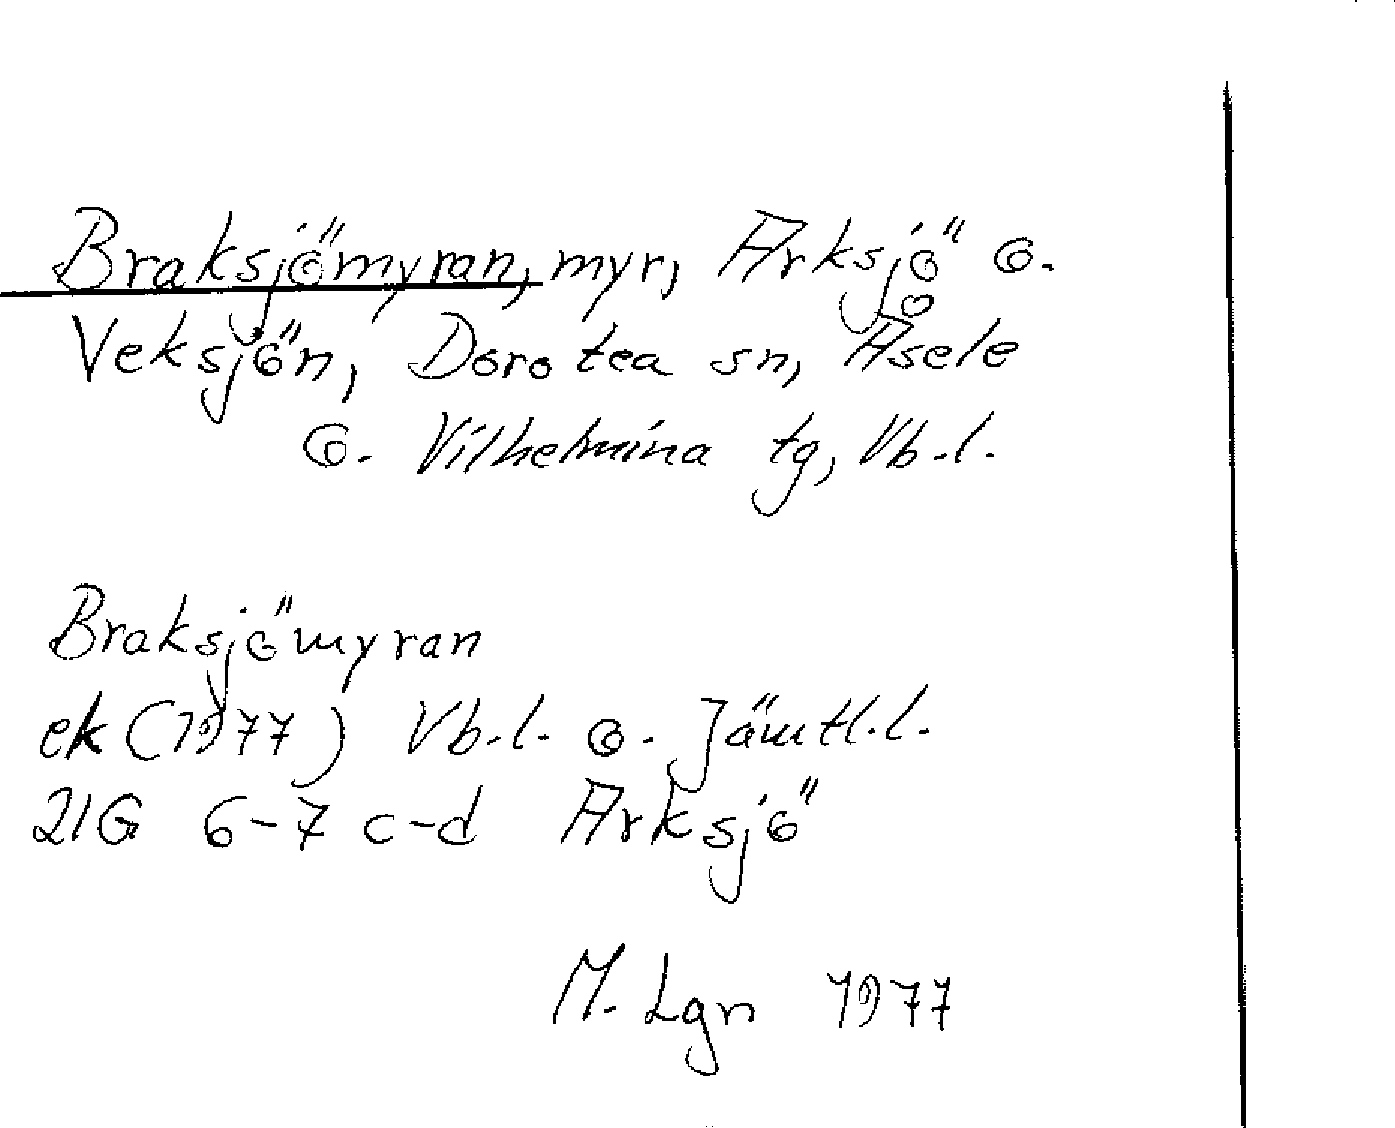 Braksjömyran, myr, Arksjö o.
Veksjön, Dorotea sn, Åsele
o. Vilhelmina tg, Vb.l.
Braksjömyran
ek (1977) Vb.l. o. Jämtl.l.
21G 6-7 c-d Arksjö
M. Lgn 1977